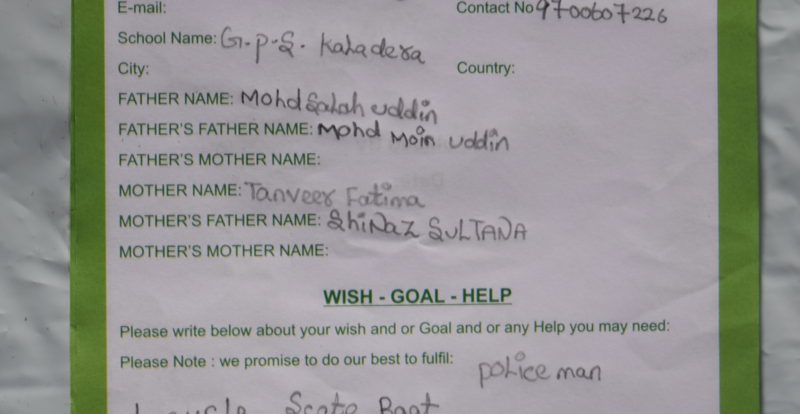 E-mail: Contact No 9700607226
School Name: G.P.S. Kaladera
City: Country:
FATHER NAME: Mohd Salah uddin
FATHER'S FATHER NAME: Mohd Moin uddin
FATHER'S MOTHER NAME:
MOTHER NAME: Tanveer Fatima
MOTHER'S FATHER NAME: ShiNaz SULTANA
MOTHER'S MOTHER NAME:
WISH - GOAL - HELP
Please write below about your wish and or Goal and or any Help you may need:
Please Note : we promise to do our best to fulfil: police man